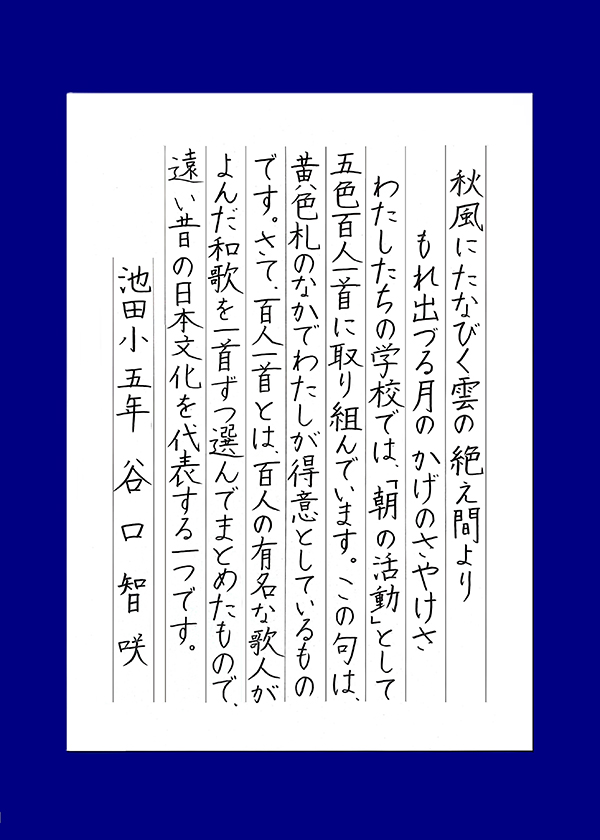 秋風にたなびく雲の絶え間より
もれ出づる月のかげのさやけさ
わたしたちの学校では、「朝の活動」として
五色百人一首に取り組んでいます。この句は、
黄色札のなかでわたしが得意としているもの
です。さて、百人一首とは、百人の有名な歌人が
よんだ和歌を一首ずつ選んでまとめたもので、
遠い昔の日本文化を代表する一つです。
池田小五年 谷口智咲